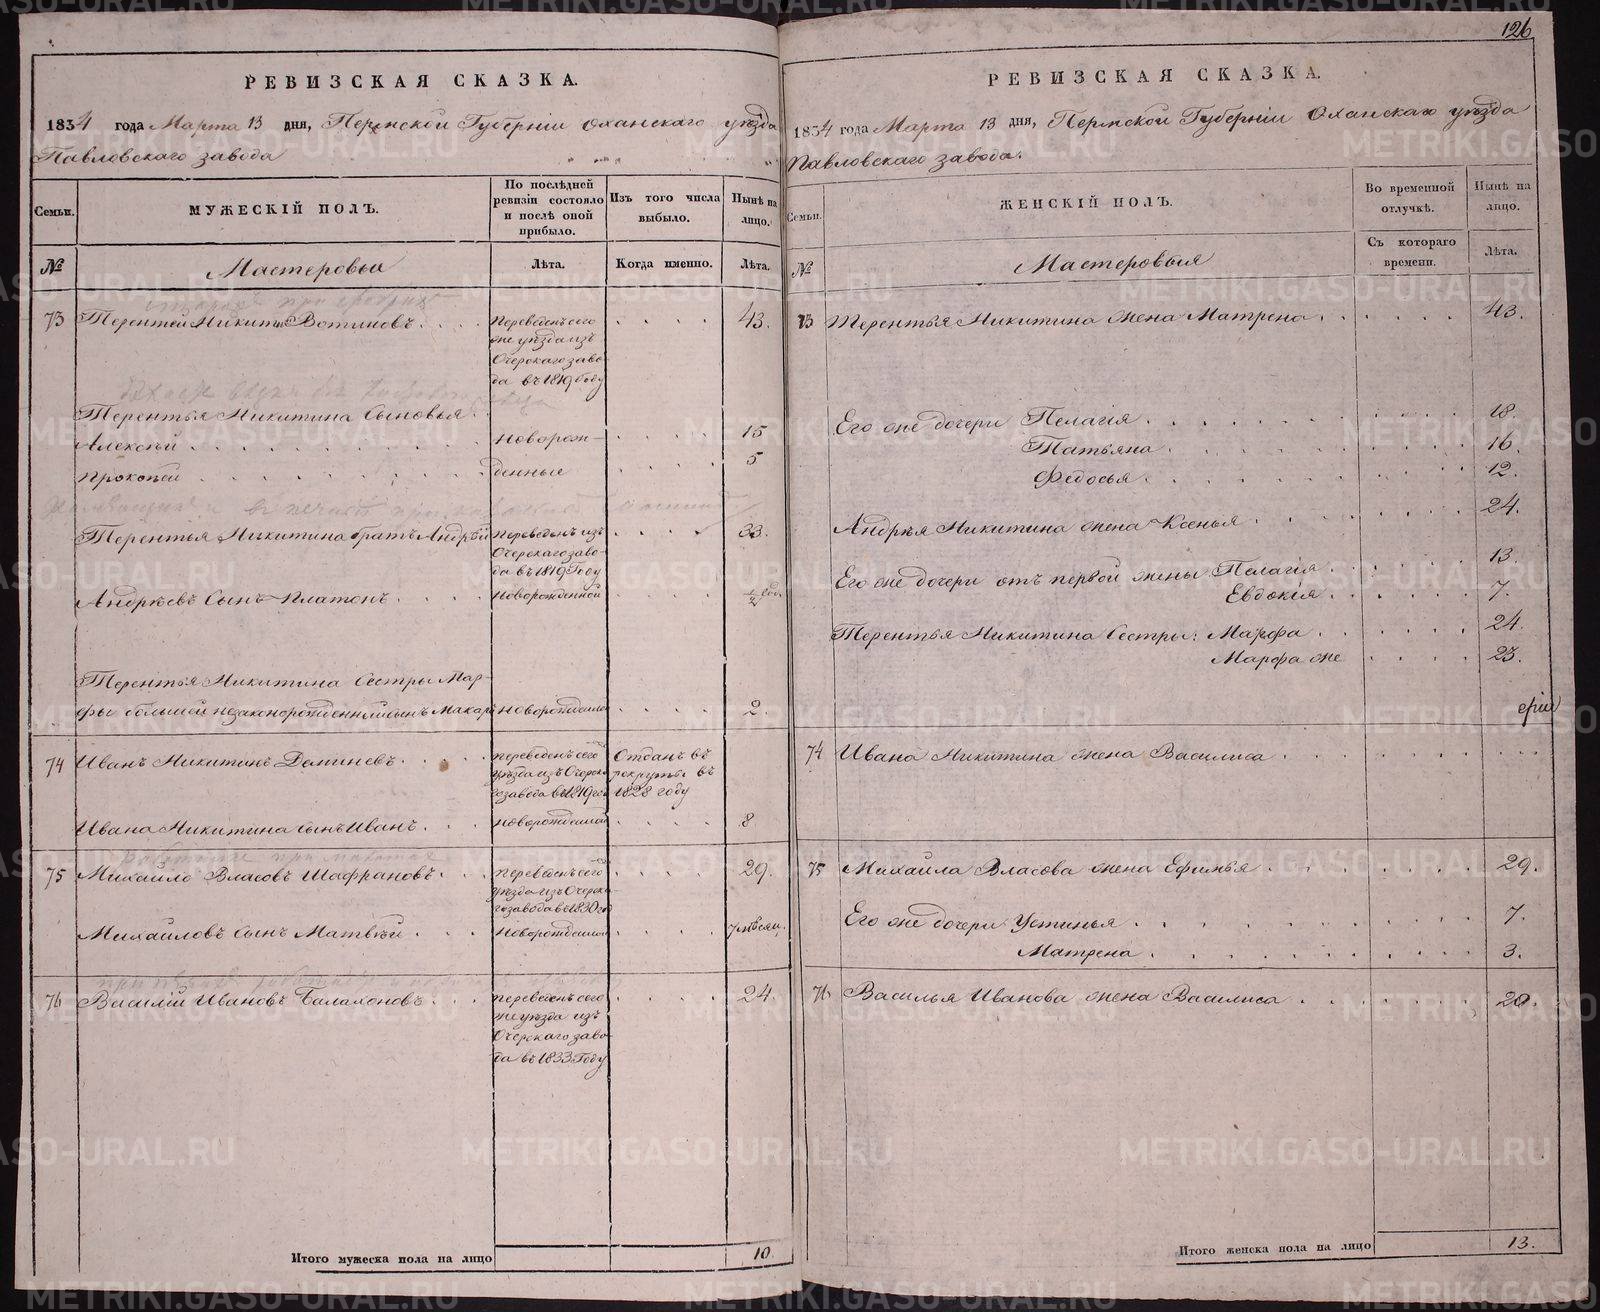 126
РЕВИЗСКАЯ СКАЗКА.
1834 года Марта 13 дня, Пермской Губерніи Оханскаго уѣзда
Павловскаго завода
Семьи.
МУЖЕСКІЙ ПОЛЪ.
По послѣдней ревизіи состояло и послѣ оной прибыло.
Изъ того числа выбыло.
Нынѣ на лицо.
№
Мастеровыи
Лѣта.
Когда именно.
Лѣта.
73 Терентей Никитинъ Вотиновъ. 43.
Переведенъ сего
же уѣзда изъ
Очерскаго заво-
да въ 1819 Году
Терентья Никитина Сыновья
Алексѣй Новорож- 15
Прокопей денные 5
Терентья Никитина братъ Андрѣй 33.
Переведенъ изъ
Очерскаго заво-
да въ 1819 Году
Андрѣевъ Сынъ Платонъ Новорожденной ½ год.
Терентья Никитина Сестры Мар-
фы большей незаконорожденный сынъ Макаръ 2.
74 Иванъ Никитинъ Деминевъ
переведенъ сего Отданъ въ
уѣзда изъ Очерска рекруты въ
го завода въ 1819 го 1828 году
Ивана Никитина сынъ Иванъ. 8
75 Михайло Власовъ Шафрановъ. 29.
переведенъ сего
уѣзда изъ Очерска-
го завода въ 1830 го
Михайловъ Сынъ Матвѣй. 7 мѣсяц.
76 Василій Ивановъ Балахоновъ 24.
переведенъ сего
же уѣзда изъ
Очерскаго заво-
да въ 1833 Году
Итого мужеска пола на лицо 10.
РЕВИЗСКАЯ СКАЗКА.
1834 года Марта 13 дня, Пермской Губерніи Оханскаго уѣзда
Павловскаго завода.
Семьи.
ЖЕНСКІЙ ПОЛЪ.
Во временной отлучкѣ.
Нынѣ на лицо.
№
Мастеровыя
Съ котораго времени.
Лѣта.
73 Терентья Никитина жена Матрена 43.
Его же дочери Пелагія 18.
Татьяна 16.
Федосья 12.
Андрѣя Никитина жена Ксенья 24.
Его же дочери отъ первой жены Пелагія 13.
Евдокія 7.
Терентья Никитина Сестры: Марфа 24.
Марфа же 23.
74 Ивана Никитина жена Василиса
75 Михаила Власова жена Ефимья 29.
Его же дочери Устинья 7.
Матрена 3.
76 Василья Иванова жена Василиса 20.
Итого женска пола на лицо 13.
METRIKI.GASO-URAL.RU